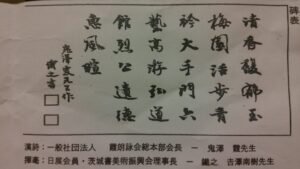 碑表
清香馥郁玉
梅園活歩青
衿大手門六
藝高游弘道
館烈公遺徳
恵風暄
鐵之書
漢詩：一般社団法人 霞朗詠会総本部会長 ー 鬼澤 霞先生
揮毫：日展会員・茨城書美術振興会理事長 ー 鐵之 吉澤南樹先生